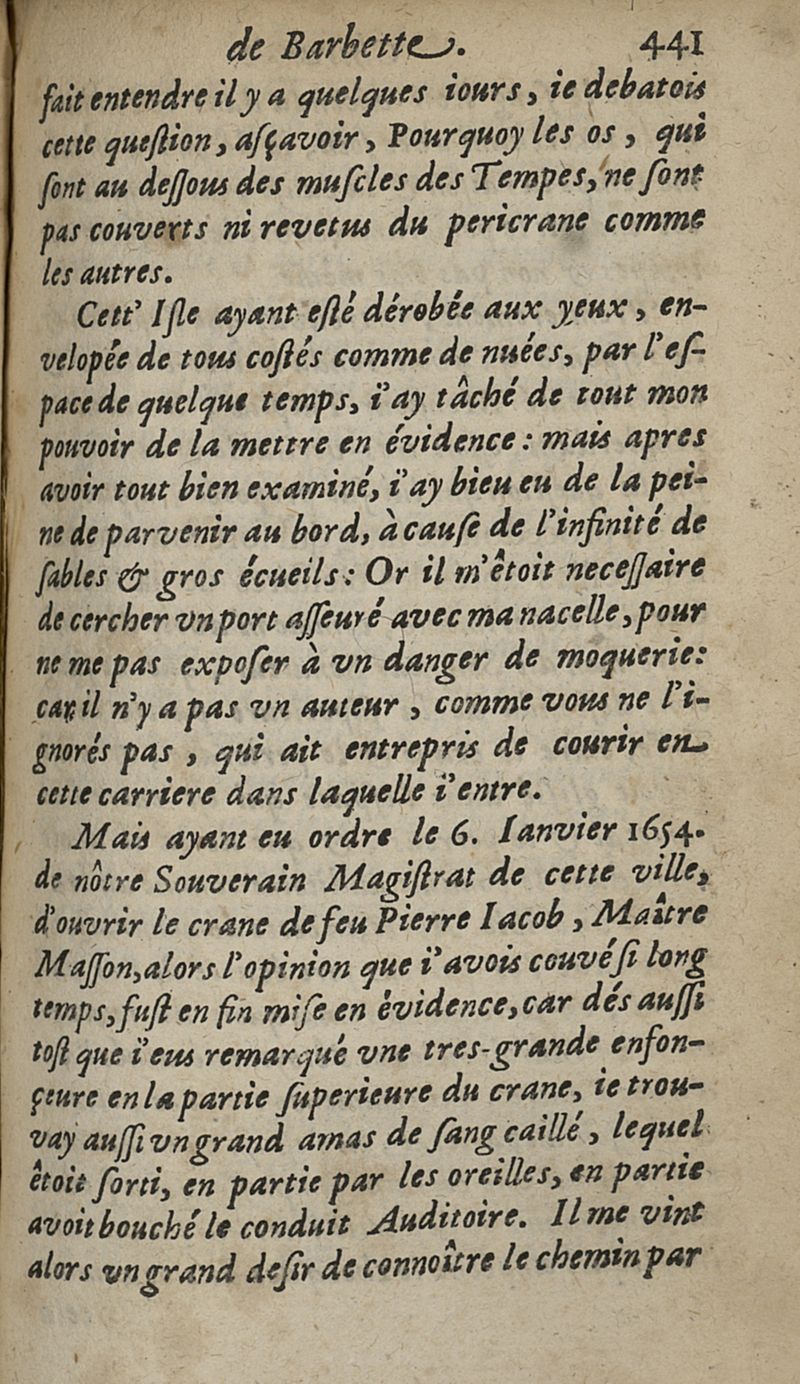 de Barbette. 441
fait entendre il y a quelques iours, ie debatois
cette queſtion, aſçavoir, Pourquoy les os, qui
ſont au deſſous des muſcles des Tempes, ne ſont
pas couverts ni revetus du pericrane comme
les autres.
Cett' Iſle ayant eſté dérobée aux yeux, en-
velopée de tous coſtés comme de nuées, par l'eſ-
pace de quelque temps, i'ay tâché de tout mon
pouvoir de la mettre en évidence : mais apres
avoir tout bien examiné, i'ay bieu eu de la pei-
ne de parvenir au bord, à cauſe de l'infinité de
ſables & gros écueils : Or il m'êtoit neceſſaire
de cercher vn port aſſeuré avec ma nacelle, pour
ne me pas expoſer à vn danger de moquerie:
car il n'y a pas vn auteur, comme vous ne l'i-
gnorés pas, qui ait entrepris de courir en
cette carriere dans laquelle i'entre.
Mais ayant eu ordre le 6. Ianvier 1654.
de nôtre Souverain Magiſtrat de cette ville,
d'ouvrir le crane de feu Pierre Iacob, Maître
Maſſon, alors l'opinion que i'avois couvé ſi long
temps, fuſt en fin miſe en èvidence, car dés auſſi
toſt que i'eus remarqué vne tres-grande enfon-
çeure en la partie ſuperieure du crane, ie trou-
vay auſſi vn grand amas de ſang caillé, lequel
êtoit ſorti, en partie par les oreilles, en partie
avoit bouché le conduit Auditoire. Il me vint
alors vn grand deſir de connoître le chemin par